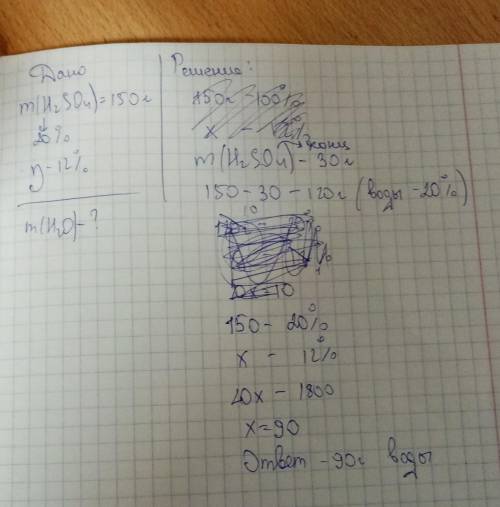 Дано
m(H₂SO₄)=150г
↓
20%
η-12%
m(H₂O)-?
Решение:
150г - 100%
x -
m(H₂SO₄) - 30г
конц
150-30-120г (воды-20%)
150 - 20%
x - 12%
20x - 1800
x=90
Ответ - 90г воды